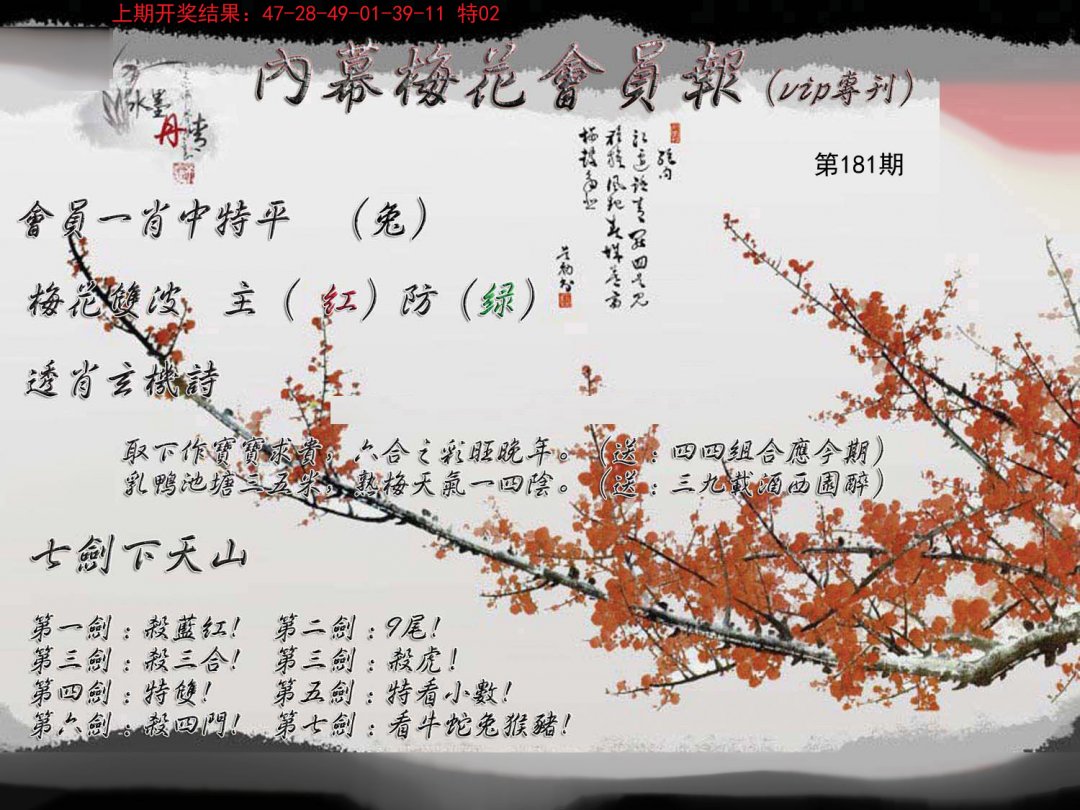 上期开奖结果：47-28-49-01-39-11 特02
內幕梅花會員報（vip專刊）
水墨
丹青
第181期
會員一肖中特平 （兔）
梅花雙波 主（紅）防（绿）
透肖玄機詩
取下作寶寶求貴，六合之彩旺晚年。（送：四四組合應今期）
乳鴨池塘三五米，熟梅天氣一四陰。（送：三九載酒西園醉）
七劍下天山
第一劍：殺藍紅！ 第二劍：9尾！
第三劍：殺三合！ 第三劍：殺虎！
第四劍：特雙！ 第五劍：特看小數！
第六劍：殺四門！ 第七劍：看牛蛇兔猴豬！